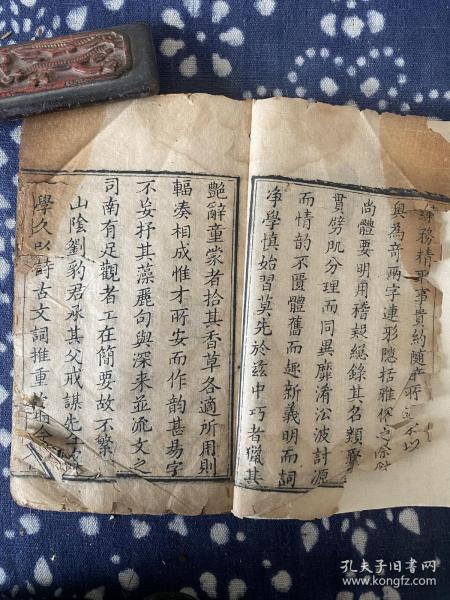 務精平事貴約隨音所
奥為奇兩字連形隱括雅俗
尚體要明用稽穀總錄其名類聚
貫劈肌分理而同異靡淆沿波討源
而情韵不匱體舊而趣新義明而詞
净學慎始習莫先於玆中巧者獵其
艷辭童蒙者拾其香草各適所用則
輻凑相成惟才所安而作韵甚易字
不妄抒其藻麗句與深来並流文之
司南有足觀者工在簡要故不繁
山陰劉豹君承其父戒謀先生
學久以詩古文詞推重
孔夫子旧书网
www.kongfz.com